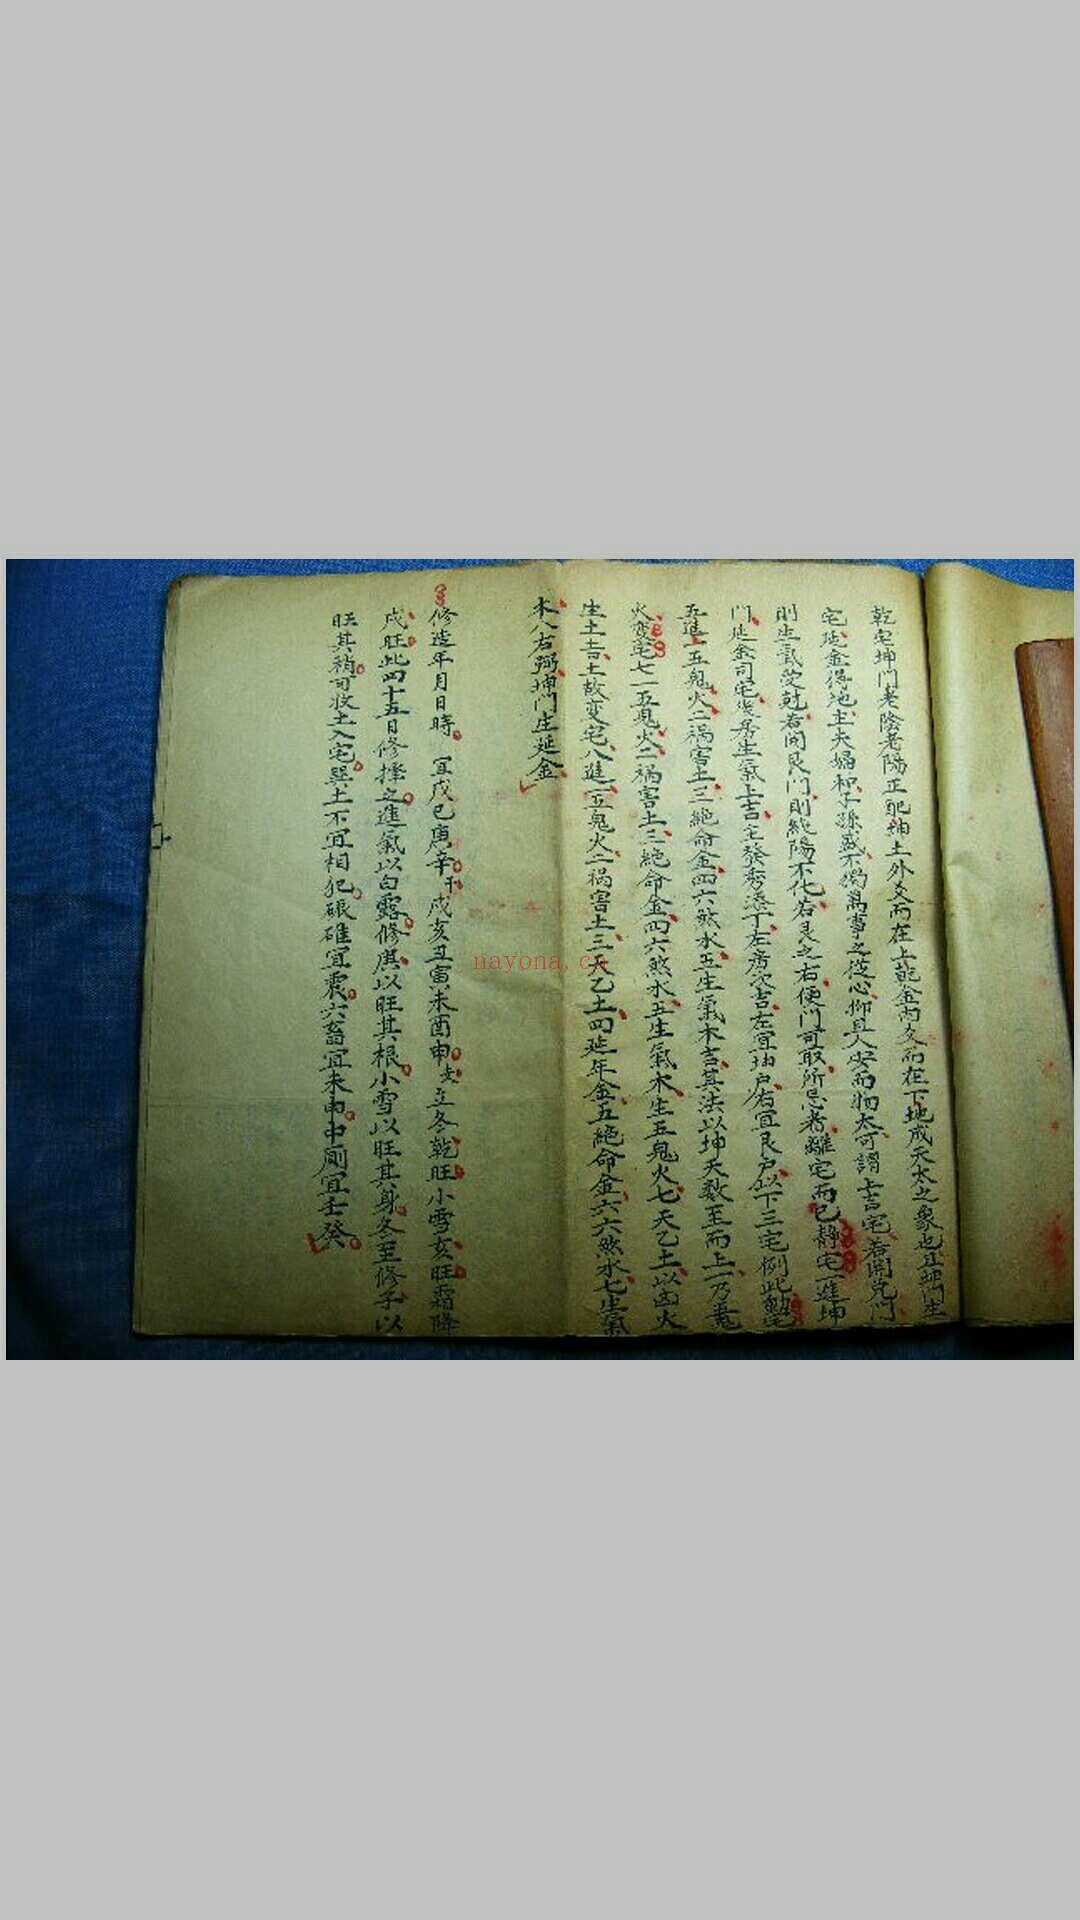 乾宅坤門老陰老陽正配坤土外爻而在上乾金內爻而在下地成天太之象也且坤門生
宅延金得地主夫婦和子孫盛不獨萬事之從心抑且人安而物太可謂上吉宅若開兌門
則生氣受尅若開艮門則純陽不化若艮之右便門可取所忌者離宅而已靜宅一進坤
門延金司宅後居生氣上吉主發秀添丁左房次吉左宜坤户右宜艮户以下三宅例此動宅
五進上五鬼火二禍害土三絶命金四六煞水五生氣木吉其法以坤天数至而上一乃五鬼
火变宅七一五鬼火二禍害土三絶命金四六煞水五生氣木生五鬼火七天乙土以凶火
生土吉土故变宅八進一五鬼火二禍害土三天乙土四延年金五絶命金六六煞水七生氣
木八右弼坤門生延金
修造年月日時 宜戊己庚辛干戌亥丑寅未酉申支立冬乾旺小雪亥旺霜降
戌旺此四十五日修擇之進氣以白露修庚以旺其根小雪以旺其身冬至修子以
旺其稍可收土入宅巽土不宜相犯碾碓宜震六畜宜未甲中厠宜壬癸
nayona.cn